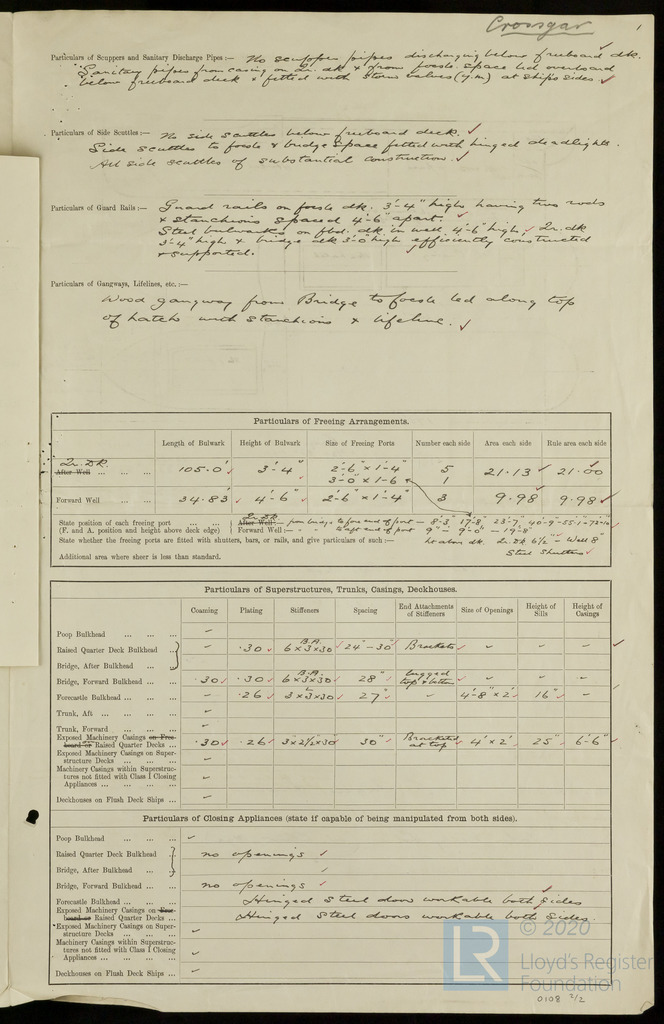 Crossgar
1
Particulars of Scuppers and Sanitary Discharge Pipes :— No scupper pipes discharging below freeboard dk.
Sanitary pipes from casing on Qr. dk & from focsle space led overboard
below freeboard deck & fitted with storm valves (g.m) at ships sides ✓
Particulars of Side Scuttles :— No side scuttles below freeboard deck. ✓
Side scuttles to focsle & bridge space fitted with hinged deadlights.
All side scuttles of substantial construction. ✓
Particulars of Guard Rails :— Guard rails on focsle dk. 3'-4" high having two rods
& stanchions spaced 4'-6" apart. ✓
Steel bulwarks on fbd. dk in well 4'-6" high, ✓ Qr. dk
3'-4" high & bridge dk 3'-0" high efficiently constructed
& supported.
Particulars of Gangways, Lifelines, etc. :—
Wood gangway from Bridge to focsle led along top
of hatch with stanchions & lifeline. ✓
Particulars of Freeing Arrangements.
Length of Bulwark Height of Bulwark Size of Freeing Ports Number each side Area each side Rule area each side
Qr. DK.
After Well ... ... ... 105.0' ✓ 3'-4" ✓ 2'-6" x 1'-4" 5 21.13 ✓ 21.00 ✓
3'-0" x 1'-6 1
Forward Well ... ... 34.83 ✓ 4'-6" ✓ 2'-6" x 1'-4" 3 9.98 ✓ 9.98 ✓
State position of each freeing port ... ... Qr. DK After Well :— from bridge to fore end of port — 8'-3" 17'-8, 23'-7, 40'-9 - 55'-1 - 72'-10 ✓
(F. and A. position and height above deck edge) Forward Well :— to aft end of port 9" — 9'-0" — 19'-8"
State whether the freeing ports are fitted with shutters, bars, or rails, and give particulars of such :— ht above dk. Qr. DK 6½" - Well 8"
Additional area where sheer is less than standard. Steel Shutters ✓
Particulars of Superstructures, Trunks, Casings, Deckhouses.
Coaming Plating Stiffeners Spacing End Attachments of Stiffeners Size of Openings Height of Sills Height of Casings
Poop Bulkhead ... ... ... ✓
Raised Quarter Deck Bulkhead ... .30 ✓ B.A. 6 x 3 x 30 ✓ 24" - 30" Brackets ✓ ✓ – – ✓
Bridge, After Bulkhead ... ...
Bridge, Forward Bulkhead ... ... .30 ✓ .30 ✓ B.A. 6 x 3 x 30 ✓ 28" ✓ Lugged top & bottom ✓ ✓ –
Forecastle Bulkhead ... ... ... – .26 ✓ 3 x 3 x 30 ✓ 27" ✓ – 4'-8" x 2' ✓ 16" ✓ –
Trunk, Aft ... ... ... ✓
Trunk, Forward ... ... ... ✓
Exposed Machinery Casings on Free-
board or Raised Quarter Decks ... .30 ✓ .26 ✓ 3 x 2½ x 30 30" ✓ Bracketed at top ✓ 4' x 2' ✓ 25" ✓ 6'-6" ✓
Exposed Machinery Casings on Super-
structure Decks ... ... ... ✓
Machinery Casings within Superstruc-
tures not fitted with Class I Closing
Appliances ... ... ... ✓
Deckhouses on Flush Deck Ships ... ✓
Particulars of Closing Appliances (state if capable of being manipulated from both sides).
Poop Bulkhead ... ... ... ✓
Raised Quarter Deck Bulkhead ... no openings ✓
Bridge, After Bulkhead ... ... ✓
Bridge, Forward Bulkhead ... ... no openings ✓
Forecastle Bulkhead ... ... ... Hinged Steel doors workable both sides
Exposed Machinery Casings on Free-
board or Raised Quarter Decks ... Hinged Steel doors workable both sides.
Exposed Machinery Casings on Super-
structure Decks ... ... ... ✓
Machinery Casings within Superstruc-
tures not fitted with Class I Closing
Appliances ... ... ... ✓
Deckhouses on Flush Deck Ships ... ✓
LR
© 2020
Lloyd's Register
Foundation
0108 2/2